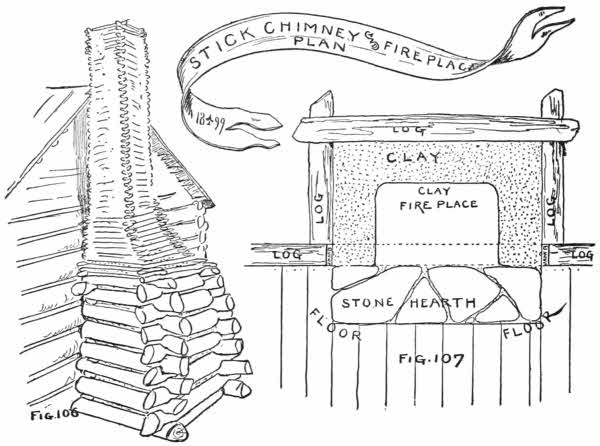 STICK CHIMNEY & FIRE PLACE
PLAN
1899
LOG
CLAY
CLAY
FIRE PLACE
LOG
LOG
LOG
LOG
STONE HEARTH
FLOOR
FLOOR
FIG.106
FIG.107